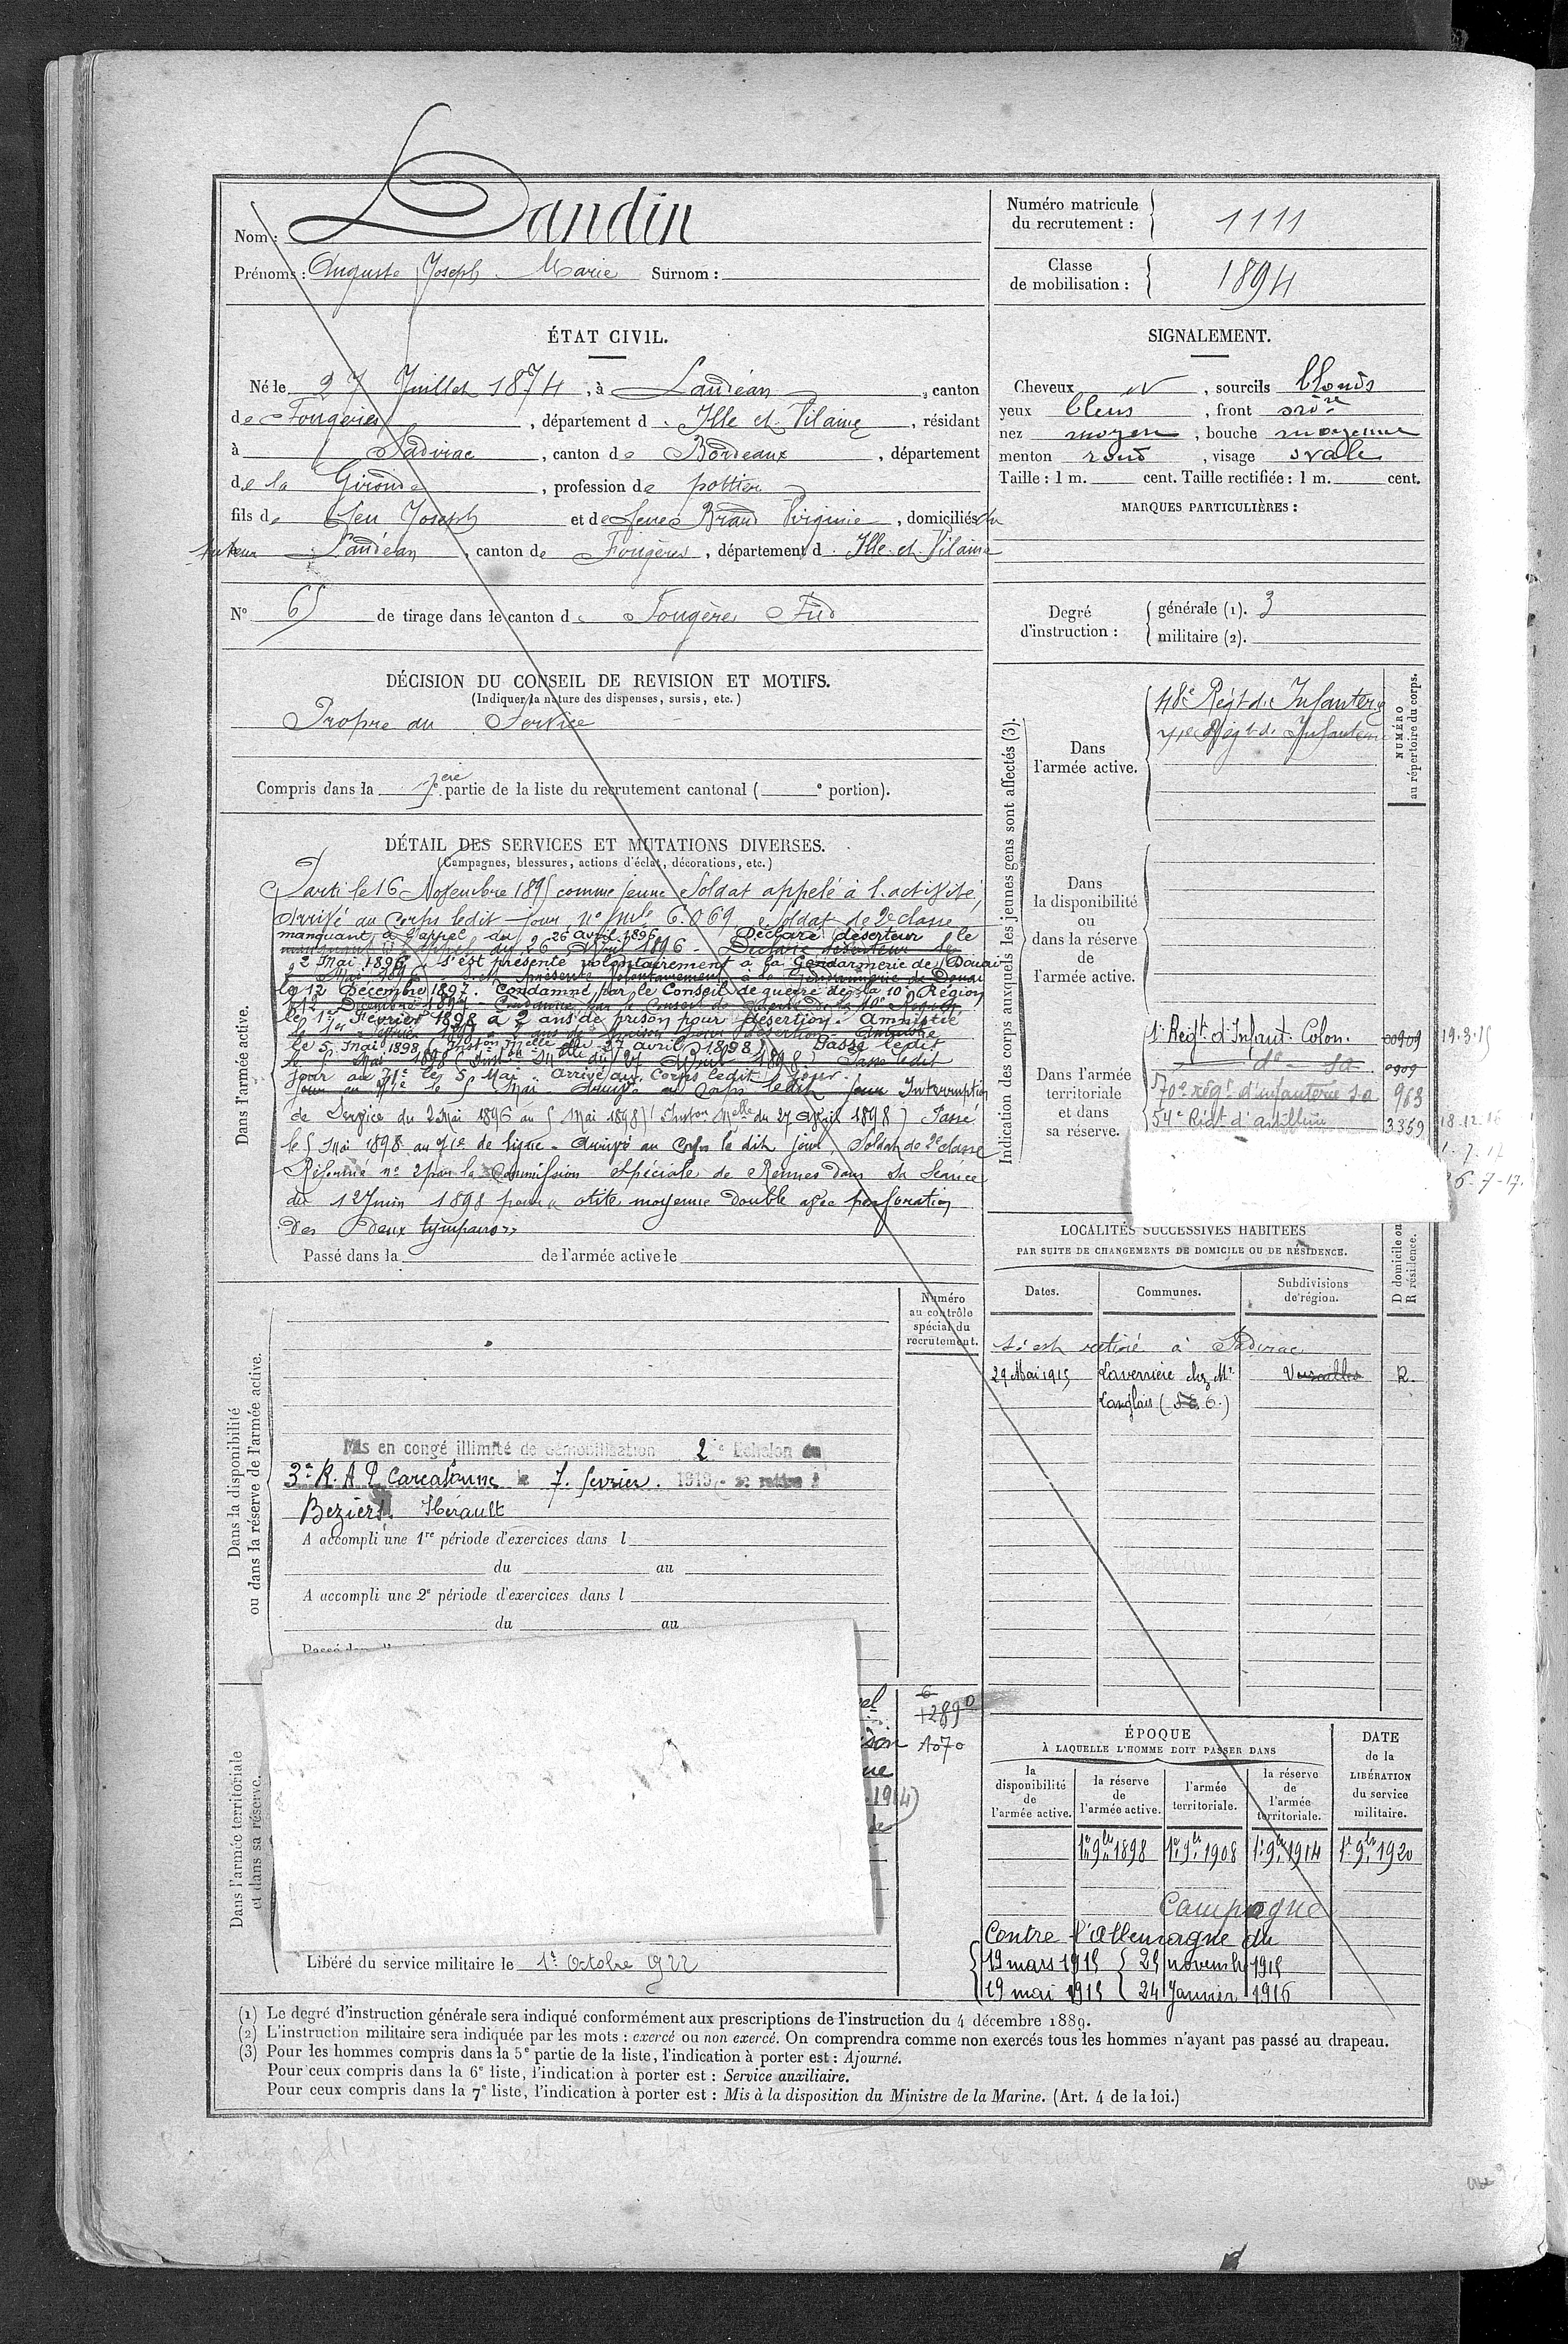 Nom : Dandin
Prénoms : Auguste Joseph Marie Surnom :
Numéro matricule du recrutement : 1111
Classe de mobilisation : 1894
ÉTAT CIVIL.
Né le 27 Juillet 1874, à Landéan, canton
de Fougères, département d Ille et Vilaine, résidant
à Sadirac, canton de Bordeaux, département
de la Gironde, profession de pottier
fils de feu Joseph et de feue Brand Virginie, domiciliés
Landéan, canton de Fougères, département d Ille et Vilaine
N° 65 de tirage dans le canton de Fougères Sud
SIGNALEMENT.
Cheveux, sourcils blonds
yeux bleus, front
nez moyen, bouche moyenne
menton rond, visage ovale
Taille : 1 m. cent. Taille rectifiée : 1 m. cent.
MARQUES PARTICULIÈRES :
Degré d'instruction : générale (1). 3
militaire (2).
DÉCISION DU CONSEIL DE REVISION ET MOTIFS.
(Indiquer la nature des dispenses, sursis, etc.)
Propre au Service
Compris dans la 1ère partie de la liste du recrutement cantonal ( e portion).
DÉTAIL DES SERVICES ET MUTATIONS DIVERSES.
(Campagnes, blessures, actions d'éclat, décorations, etc.)
Dans l'armée active.
Parti le 16 Novembre 1895 comme jeune Soldat appelé à l'activité,
arrivé au Corps ledit jour, n° mle 6.069, Soldat de 2e classe
manquant à l'appel du 26 avril 1896. Déclaré déserteur le
2 Mai 1896. S'est présenté volontairement à la Gendarmerie de Douai
le 12 Décembre 1897. Condamné par le Conseil de guerre de la 10e Région
le 1er Février 1898 à 2 ans de prison pour désertion. Amnistié
le 5 Mai 1898 (Inston Melle du 27 avril 1898) Passé ledit
jour au 71e le 5 Mai. Arrivé au Corps ledit jour.
Interruption
de Service du 2 Mai 1896 au 5 Mai 1898 (Inston Melle du 27 Avril 1898) Passé
le 5 Mai 1898 au 71e de ligne. Arrivé au Corps le dit jour, Soldat de 2e classe
Réformé n° 2 par la Commission Spéciale de Rennes dans sa Séance
du 12 Juin 1898 pour « otite moyenne double avec perforation
des deux tympans »
Passé dans la de l'armée active le
Indication des corps auxquels les jeunes gens sont affectés (3).
NUMÉRO au répertoire du corps.
Dans l'armée active.
48e Régt d'Infanterie
71e Régt d'Infanterie
Dans la disponibilité ou dans la réserve de l'armée active.
Dans l'armée territoriale et dans sa réserve.
1r Regt d'Infant. Colon. 00909 19.3.15
do 0909
70e régt d'infanterie 963
54e Régt d'artillerie 3359 18.12.16
1.7.17
6-7-17.
LOCALITÉS SUCCESSIVES HABITÉES
PAR SUITE DE CHANGEMENTS DE DOMICILE OU DE RÉSIDENCE.
Dates. Communes. Subdivisions de région. D domicile ou R résidence.
S'est retiré à Sadirac
29 Mai 1915 Laverrière chez Mr Versailles R.
Langlais (S. & O.)
Dans la disponibilité ou dans la réserve de l'armée active.
Numéro au contrôle spécial du recrutement.
Mis en congé illimité de démobilisation 2e Echelon du
3e R.A.P. Carcasonne le 7. fevrier. 1919, se retire à
Beziers. Hérault
A accompli une 1re période d'exercices dans l
du au
A accompli une 2e période d'exercices dans l
du au
Dans l'armée territoriale et dans sa réserve.
6
1289
1070
1914)
Libéré du service militaire le 1er Octobre 1922
ÉPOQUE
À LAQUELLE L'HOMME DOIT PASSER DANS
la disponibilité de l'armée active. la réserve de l'armée active. l'armée territoriale. la réserve de l'armée territoriale.
DATE de la LIBÉRATION du service militaire.
1er 9bre 1898 1er 9bre 1908 1er 9bre 1914 1er 9bre 1920
Campagne
Contre l'Allemagne du
19 mars 1915 25 novembre 1915
19 mai 1915 24 Janvier 1916
(1) Le degré d'instruction générale sera indiqué conformément aux prescriptions de l'instruction du 4 décembre 1889.
(2) L'instruction militaire sera indiquée par les mots : exercé ou non exercé. On comprendra comme non exercés tous les hommes n'ayant pas passé au drapeau.
(3) Pour les hommes compris dans la 5e partie de la liste, l'indication à porter est : Ajourné.
Pour ceux compris dans la 6e liste, l'indication à porter est : Service auxiliaire.
Pour ceux compris dans la 7e liste, l'indication à porter est : Mis à la disposition du Ministre de la Marine. (Art. 4 de la loi.)